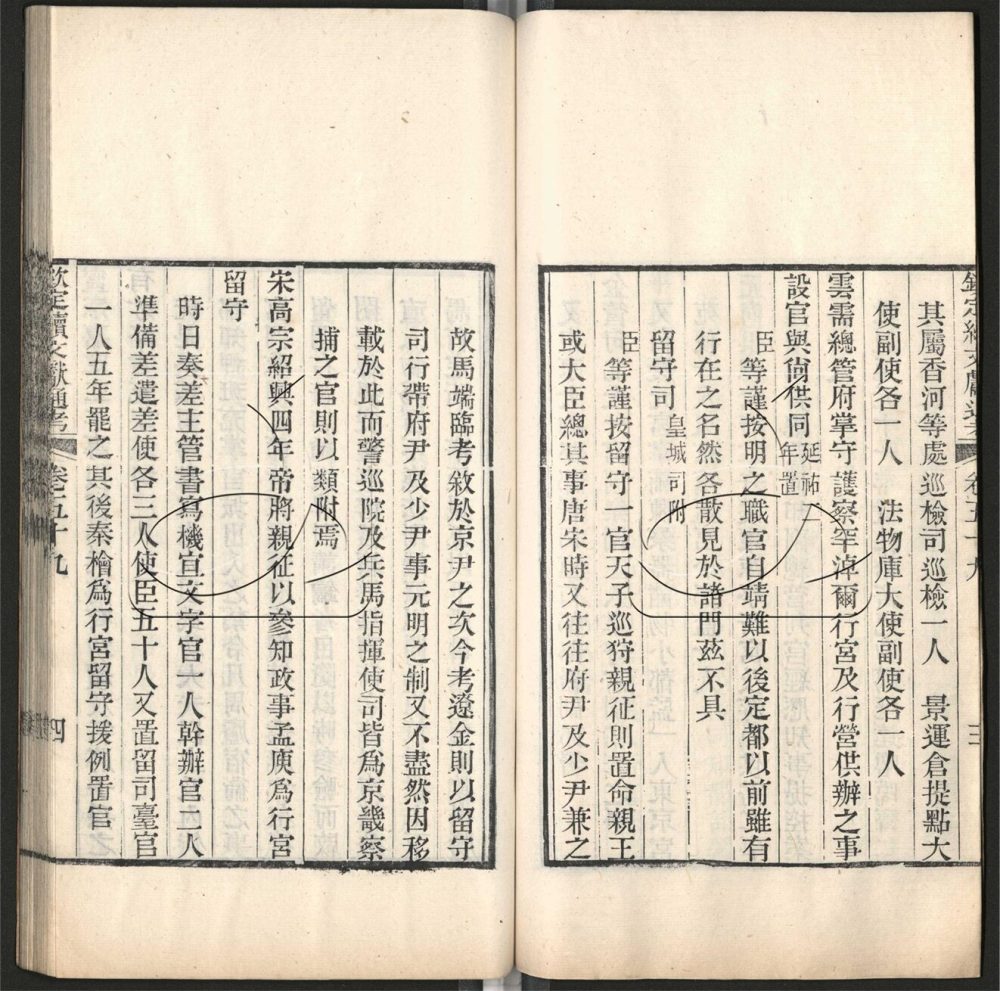 欽定續文獻通考 卷五十九 三
其屬香河等處巡檢司巡檢一人 景運倉提點大
使副使各一人 法物庫大使副使各一人
雲需總管府掌守護察罕淖爾行宮及行營供辦之事
設官與尚供同延祐二年置
臣等謹按明之職官自靖難以後定都以前雖有
行在之名然各散見於諸門茲不具
留守司皇城司附
臣等謹按留守一官天子巡狩親征則置命親王
或大臣總其事唐宋時又往往府尹及少尹兼之
故馬端臨考敘於京尹之次今考遼金則以留守
司行帶府尹及少尹事元明之制又不盡然因移
載於此而警巡院及兵馬指揮使司皆爲京畿察
捕之官則以類附焉
宋高宗紹興四年帝將親征以參知政事孟庾爲行宮
留守
時日奏差主管書寫機宜文字官一人幹辦官二人
準備差遣差使各三人使臣五十人又置留司臺官
一人五年罷之其後秦檜爲行宮留守援例置官
欽定續文獻通考 卷五十九 四